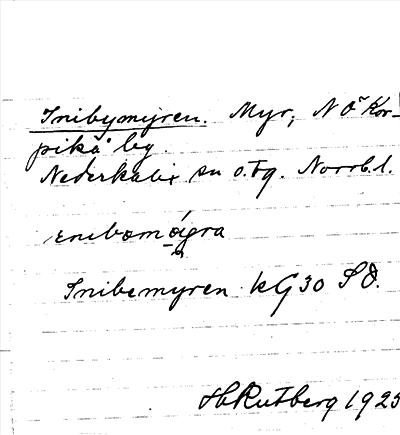 Snibymyren. Myr, NÖ Kor-
pikå by.
Nederkalix sn o. tg. Norrb. l.
snibomýgra
Snibemyren kG 30 SO.
HRutberg 1925